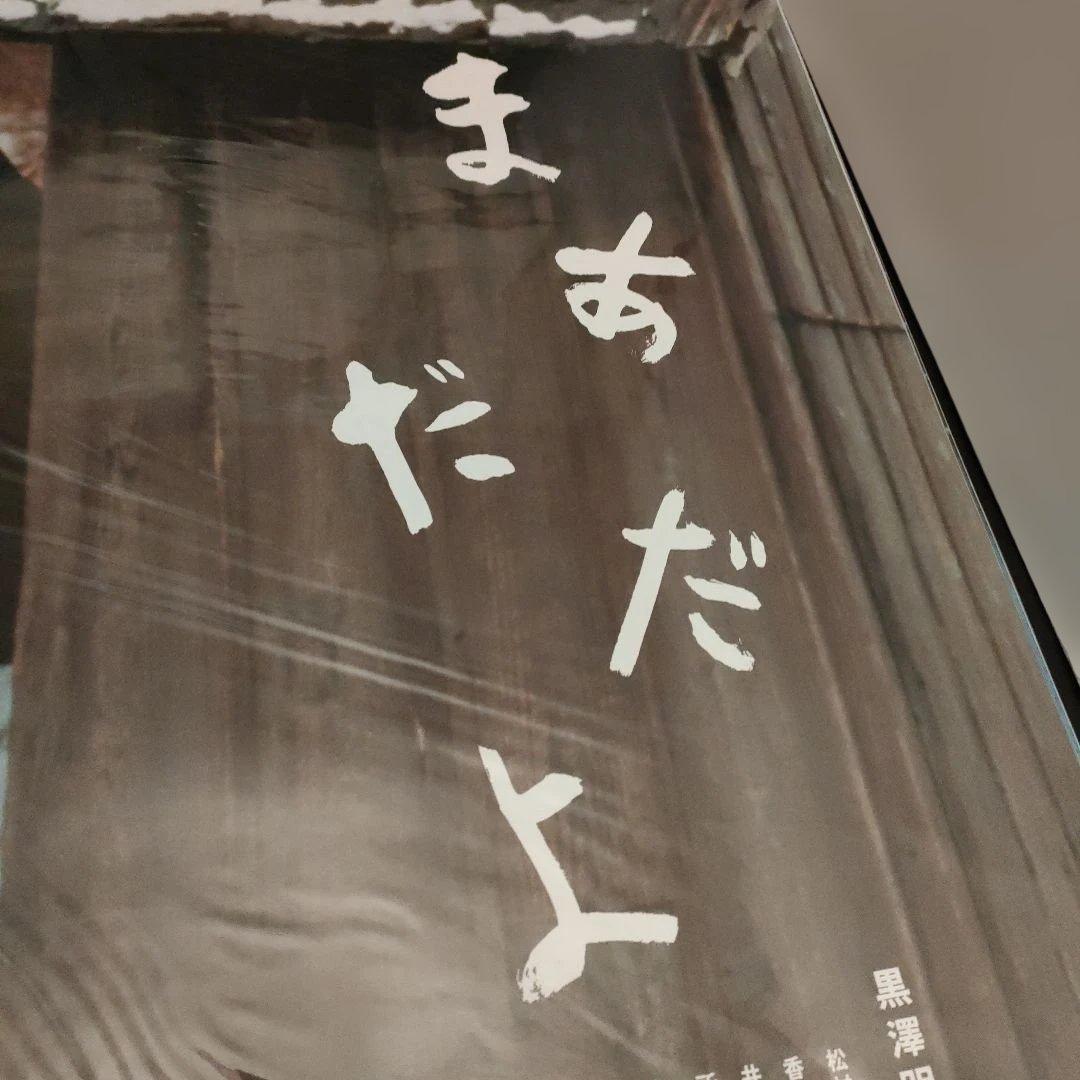 まあだだよ
黒澤明
松
香
井